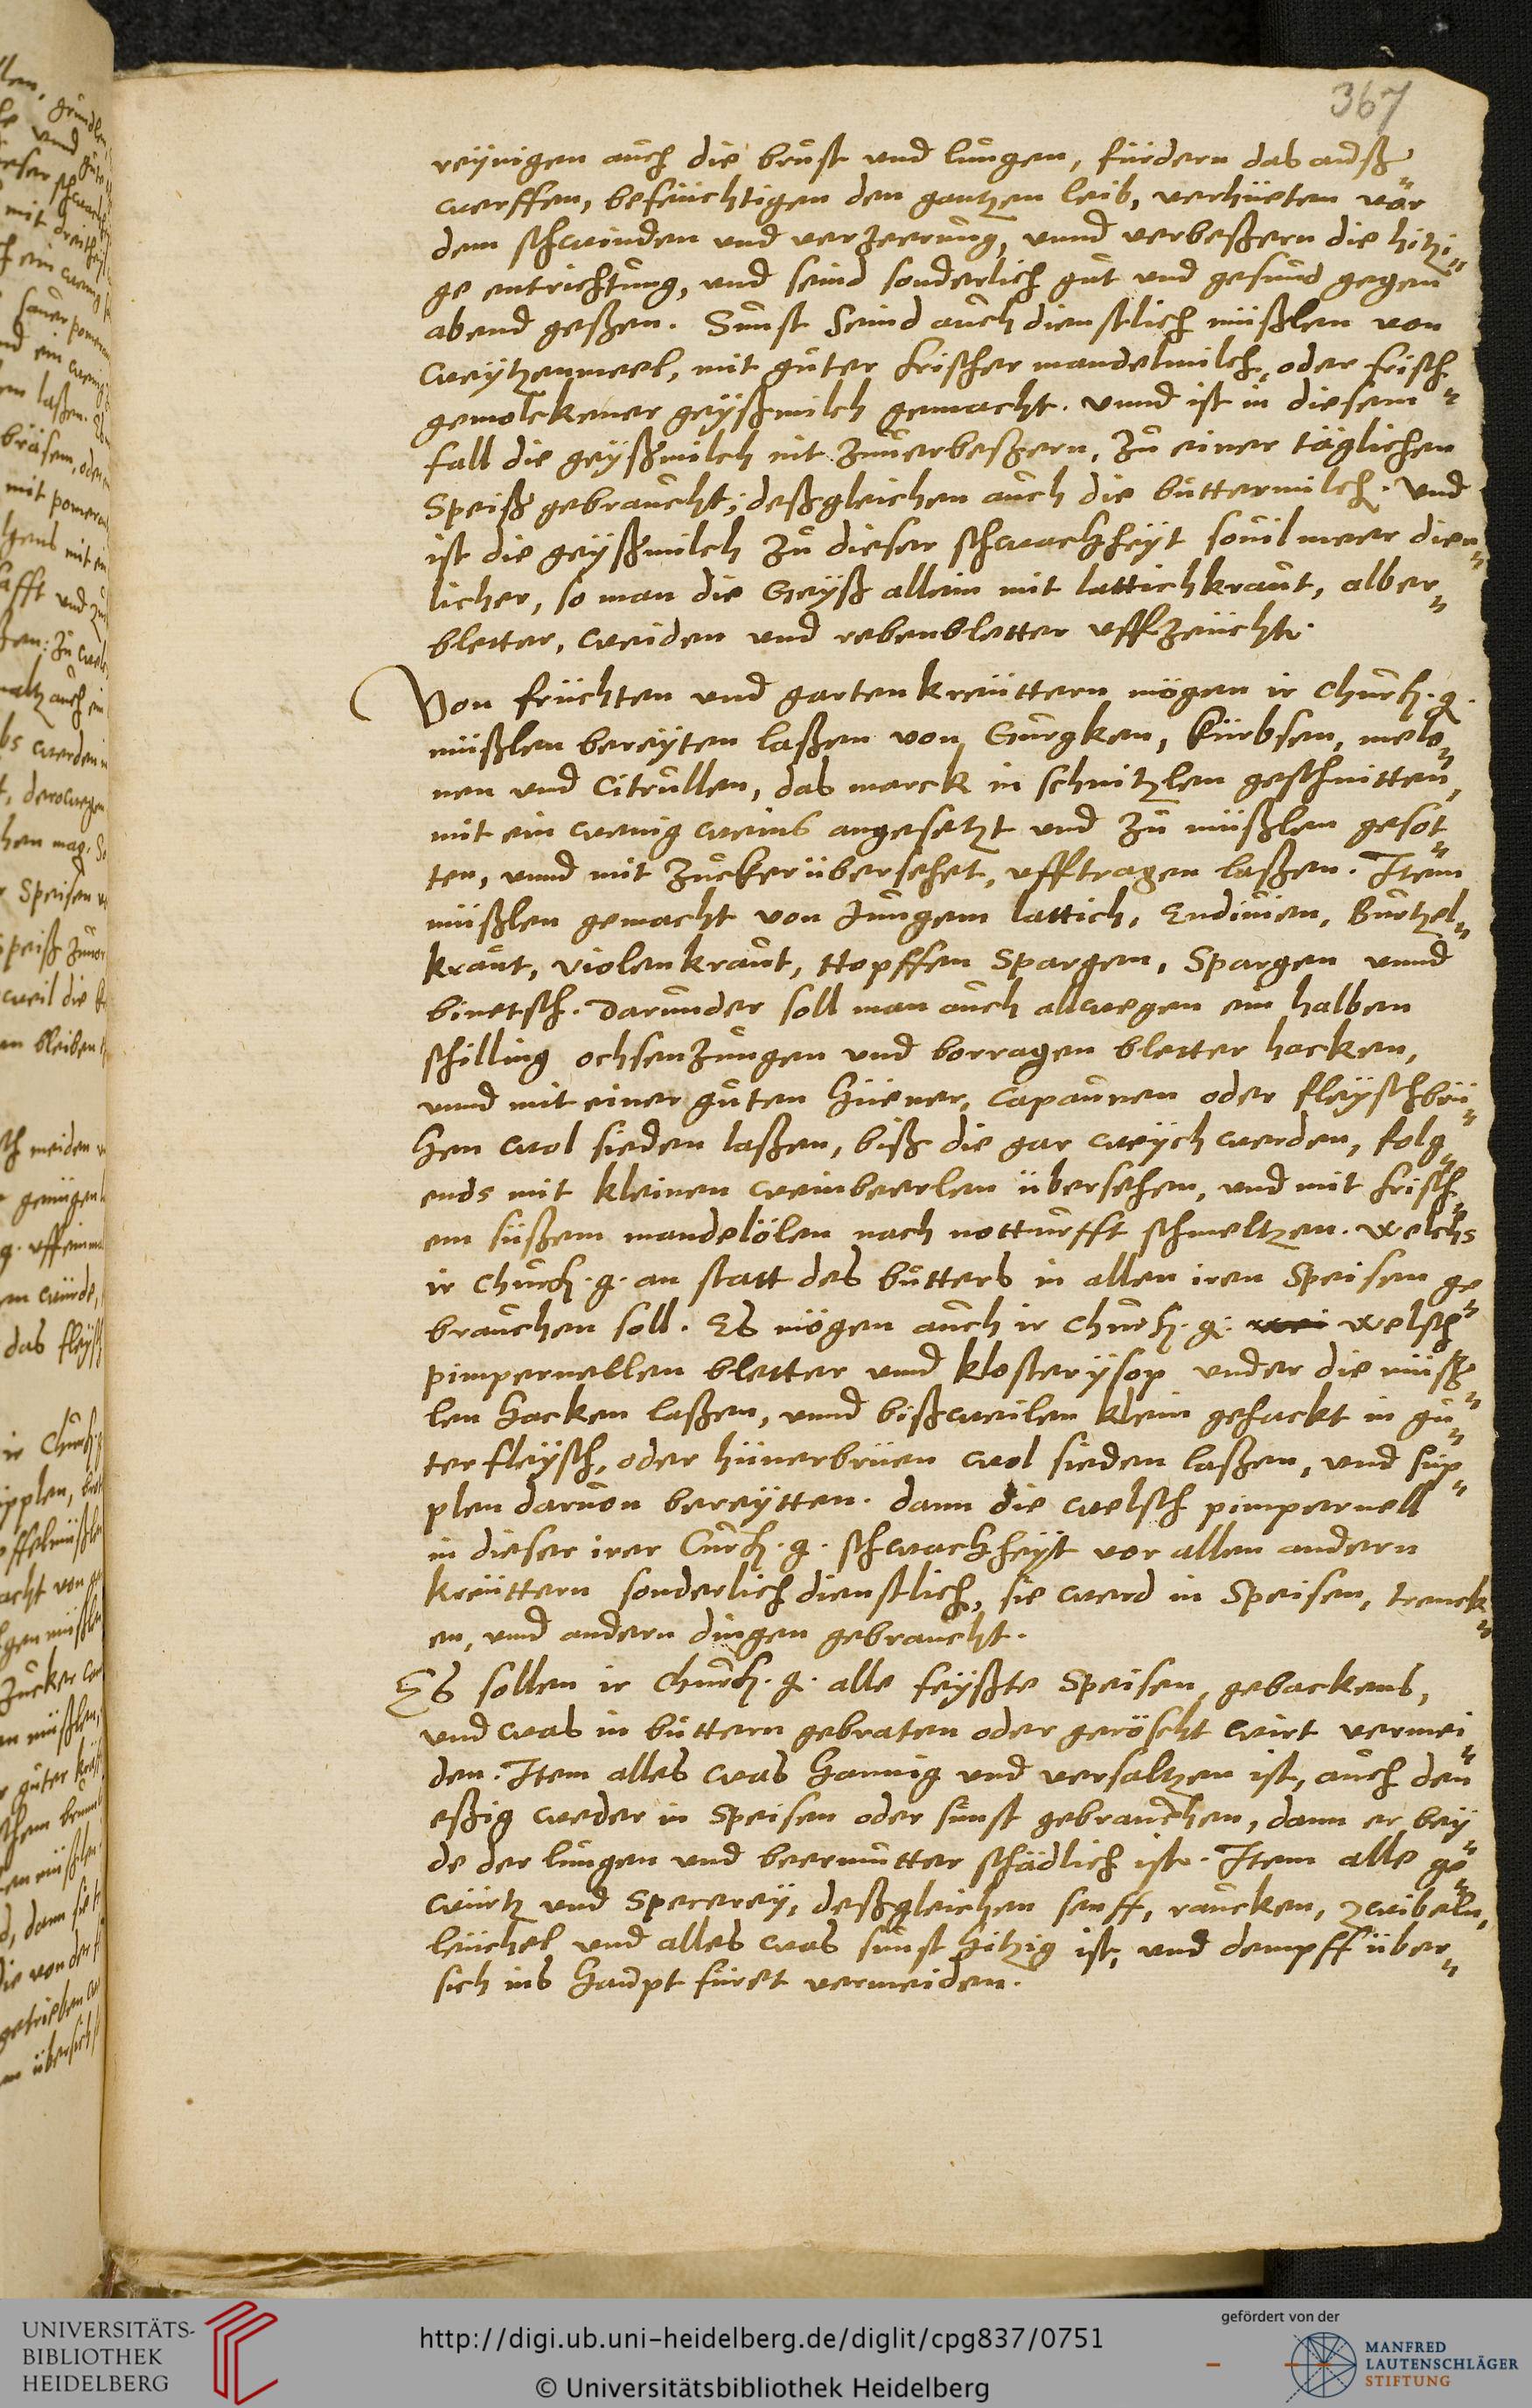 367
reÿnigen auch die brust vnd lungen, fürdern das auß
werffen, befeüchtigen den gantzen leib, verhüeten vor
dem schwinden vnd verzeerung, vnnd verbeßern die hitzi=
ge entrichtung, vnd seind sonderlich gut vnd gesund gegen
abend geßen. Sunst seind auch dienstlich müßlen von
weÿtzenmeel, mit guter frischer mandelmilch, oder frisch
gemolckener geÿßmilch gemacht. vnnd ist in diesem
fall die geÿßmilch nit zuuerbeßern, zu einer täglichen
Speiß gebraucht, deßgleichen auch die buttermilch. Vnd
ist die geÿßmilch zu dieser schwachheÿt souil meer dien=
licher, so man die Geÿß allein mit lattichkraut, alber=
bletter, weiden vnd rebenbletter vffzeücht.
Von früchten vnd gartenkreüttern mögen ir Churf. g.
müßlen bereÿten laßen von Gurgken, Kürbsen, melo=
nen vnd Citrullen, das marck in schnitzlen geschnitten,
mit ein wenig weins angesetzt vnd zu müßlen gesot=
ten, vnnd mit Zucker übersehet, vfftragen laßen. Item
müßlen gemacht von Jungem lattich, Endiuien, Burtzel=
kraut, violenkraut, Hopffen Spargen, Spargen vnnd
binetsch. Darunder soll man auch allwegen ein halben
schilling ochsenzungen vnd borragen bletter hacken,
vnnd mit einer guten Hüener, Capaunen oder fleÿschbrü=
hen wol sieden laßen, biß die gar weÿch werden, folg=
ends mit kleinen weinbeerlen übersehen, vnd mit frisch=
em süßem mandelölen nach notturfft schmeltzen. Welchs
ir Churf. g. an statt des butters in allen iren Speisen ge=
brauchen soll. Es mögen auch ir Churf. g. welsch
pimpernellen bletter vnnd klosterÿsop vnder die müß=
len Hacken laßen, vnnd bißweilen klein gehackt in gu=
ter fleÿsch, oder hünerbrüen wol sieden laßen, vnd süp=
plen daruon bereÿtten. dann die welsch pimpernell
in dieser irer Curf. g. schwachheÿt vor allen andern
kreüttern sonderlich dienstlich, sie werd in Speisen, trenck=
en, vnnd andern dingen gebraucht.
Es sollen ir Churf. g. alle feÿßte Speisen, gebackens,
vnd was in buttern gebraten oder geröscht wirt vermei=
den. Item alles was Hannig vnd versaltzen ist, auch den
eßig weder in Speisen oder sunst gebrauchen, dann er beÿ=
de der lungen vnd beermutter schädlich ist. Item alle ge=
würtz vnd Specereÿ, deßgleichen senff, raucken, zwibeln,
leüchel vnd alles was sunst Hitzig ist, vnd dempff über=
sich ins Haupt füret vermeiden.
UNIVERSITÄTS-
BIBLIOTHEK
HEIDELBERG
http://digi.ub.uni-heidelberg.de/diglit/cpg837/0751
© Universitätsbibliothek Heidelberg
gefördert von der
MANFRED
LAUTENSCHLÄGER
STIFTUNG